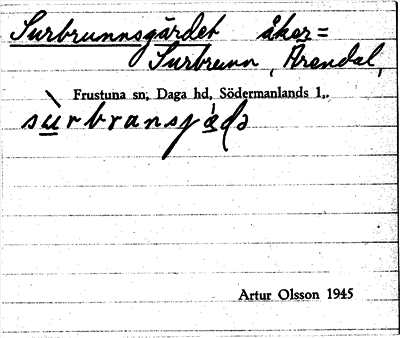 Surbrunnsgärdet åker=
Surbrunn, Arendal,
Frustuna sn, Daga hd, Södermanlands l,.
Artur Olsson 1945